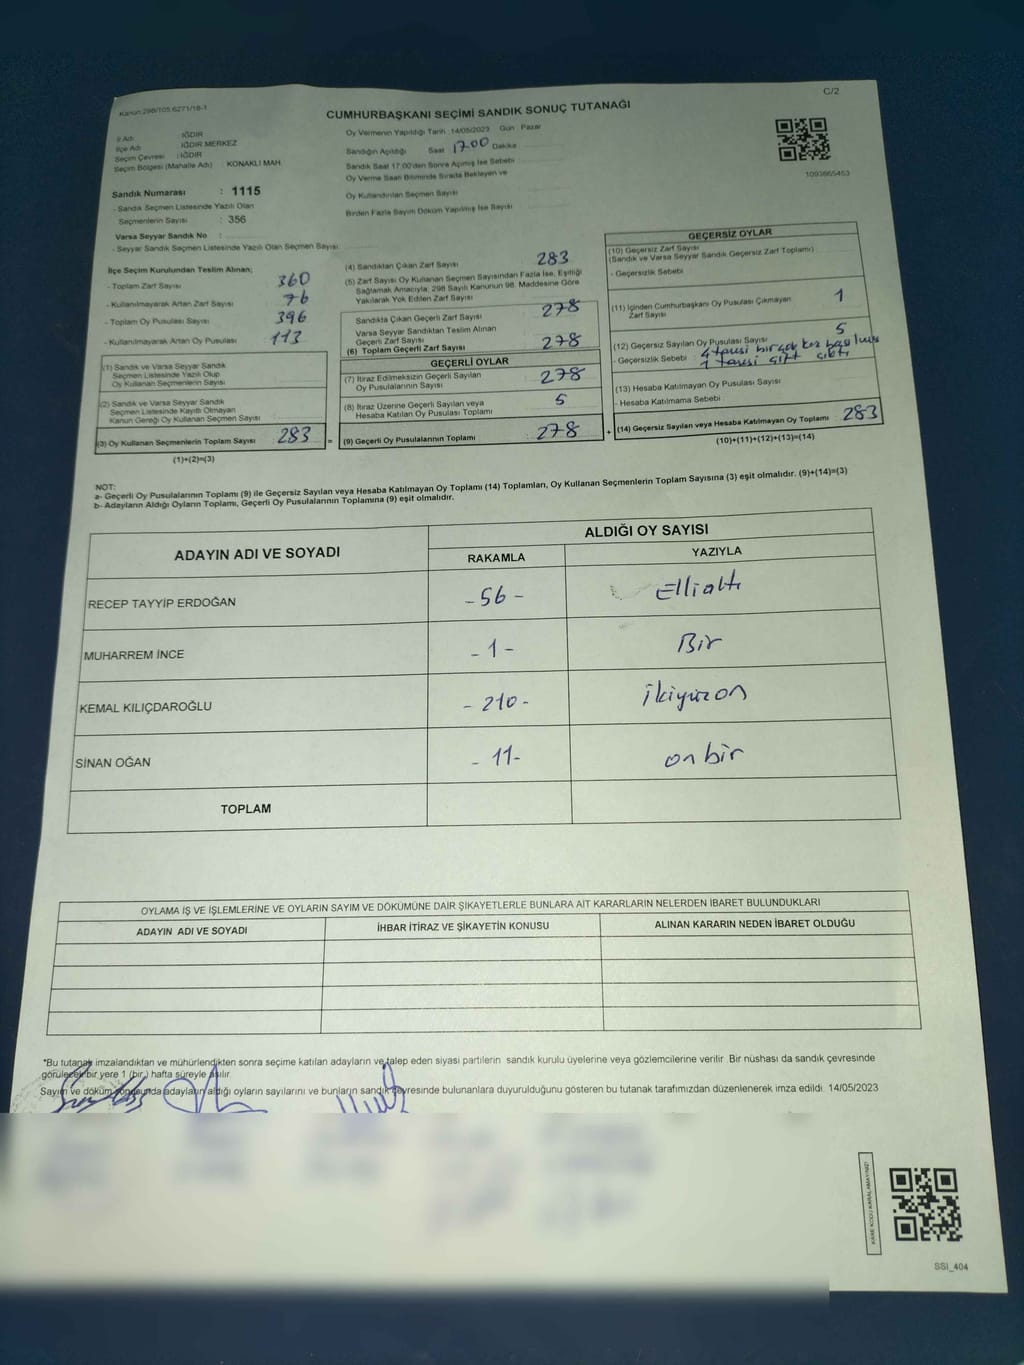 Kanun 298/105.6271/18-1
C/2
CUMHURBAŞKANI SEÇİMİ SANDIK SONUÇ TUTANAĞI
İl Adı : IĞDIR
İlçe Adı : IĞDIR MERKEZ
Seçim Çevresi : IĞDIR
Seçim Bölgesi (Mahalle Adı) KONAKLI MAH.
Sandık Numarası : 1115
- Sandık Seçmen Listesinde Yazılı Olan
Seçmenlerin Sayısı : 356
Varsa Seyyar Sandık No :
- Seyyar Sandık Seçmen Listesinde Yazılı Olan Seçmen Sayısı
Oy Vermenin Yapıldığı Tarih 14/05/2023 Gün : Pazar
Sandığın Açıldığı Saat 17.00 Dakika
Sandık Saat 17:00'den Sonra Açılmış İse Sebebi
Oy Verme Saati Bitiminde Sırada Bekleyen ve
Oy Kullandırılan Seçmen Sayısı
Birden Fazla Sayım Döküm Yapılmış İse Sayısı
1093665453
İlçe Seçim Kurulundan Teslim Alınan;
- Toplam Zarf Sayısı 360
- Kullanılmayarak Artan Zarf Sayısı 76
- Toplam Oy Pusulası Sayısı 396
- Kullanılmayarak Artan Oy Pusulası 113
(1) Sandık ve Varsa Seyyar Sandık
Seçmen Listesinde Yazılı Olup
Oy Kullanan Seçmenlerin Sayısı
(2) Sandık ve Varsa Seyyar Sandık
Seçmen Listesinde Kayıtlı Olmayan
Kanun Gereği Oy Kullanan Seçmen Sayısı
(3) Oy Kullanan Seçmenlerin Toplam Sayısı 283
(1)+(2)=(3)
=
(4) Sandıktan Çıkan Zarf Sayısı 283
(5) Zarf Sayısı Oy Kullanan Seçmen Sayısından Fazla İse, Eşitliği
Sağlamak Amacıyla, 298 Sayılı Kanunun 98. Maddesine Göre
Yakılarak Yok Edilen Zarf Sayısı
Sandıkta Çıkan Geçerli Zarf Sayısı 278
Varsa Seyyar Sandıktan Teslim Alınan
Geçerli Zarf Sayısı
(6) Toplam Geçerli Zarf Sayısı 278
GEÇERLİ OYLAR
(7) İtiraz Edilmeksizin Geçerli Sayılan
Oy Pusulalarının Sayısı 278
(8) İtiraz Üzerine Geçerli Sayılan veya
Hesaba Katılan Oy Pusulası Toplamı 5
(9) Geçerli Oy Pusulalarının Toplamı 278
+
GEÇERSİZ OYLAR
(10) Geçersiz Zarf Sayısı
(Sandık ve Varsa Seyyar Sandık Geçersiz Zarf Toplamı)
- Geçersizlik Sebebi
(11) İçinden Cumhurbaşkanı Oy Pusulası Çıkmayan
Zarf Sayısı 1
(12) Geçersiz Sayılan Oy Pusulası Sayısı 5
- Geçersizlik Sebebi 4 tanesi birçok kez basılmış
1 tanesi çift çıktı
(13) Hesaba Katılmayan Oy Pusulası Sayısı
- Hesaba Katılmama Sebebi
(14) Geçersiz Sayılan veya Hesaba Katılmayan Oy Toplamı 283
(10)+(11)+(12)+(13)=(14)
NOT:
a- Geçerli Oy Pusulalarının Toplamı (9) ile Geçersiz Sayılan veya Hesaba Katılmayan Oy Toplamı (14) Toplamları, Oy Kullanan Seçmenlerin Toplam Sayısına (3) eşit olmalıdır. (9)+(14)=(3)
b- Adayların Aldığı Oyların Toplamı, Geçerli Oy Pusulalarının Toplamına (9) eşit olmalıdır.
ADAYIN ADI VE SOYADI
ALDIĞI OY SAYISI
RAKAMLA YAZIYLA
RECEP TAYYİP ERDOĞAN - 56 - Ellialtı
MUHARREM İNCE - 1 - Bir
KEMAL KILIÇDAROĞLU - 210 - ikiyüzon
SİNAN OĞAN - 11 - on bir
TOPLAM
OYLAMA İŞ VE İŞLEMLERİNE VE OYLARIN SAYIM VE DÖKÜMÜNE DAİR ŞİKAYETLERLE BUNLARA AİT KARARLARIN NELERDEN İBARET BULUNDUKLARI
ADAYIN ADI VE SOYADI İHBAR İTİRAZ VE ŞİKAYETİN KONUSU ALINAN KARARIN NEDEN İBARET OLDUĞU
*Bu tutanak imzalandıktan ve mühürlendikten sonra seçime katılan adayların ve talep eden siyasi partilerin sandık kurulu üyelerine veya gözlemcilerine verilir. Bir nüshası da sandık çevresinde
görülecek bir yere 1 (bir) hafta süreyle asılır.
Sayım ve döküm sonucunda adayların aldığı oyların sayılarını ve bunların sandık çevresinde bulunanlara duyurulduğunu gösteren bu tutanak tarafımızdan düzenlenerek imza edildi. 14/05/2023
KARE KODU KARALAMAYINIZ!
SSI_404